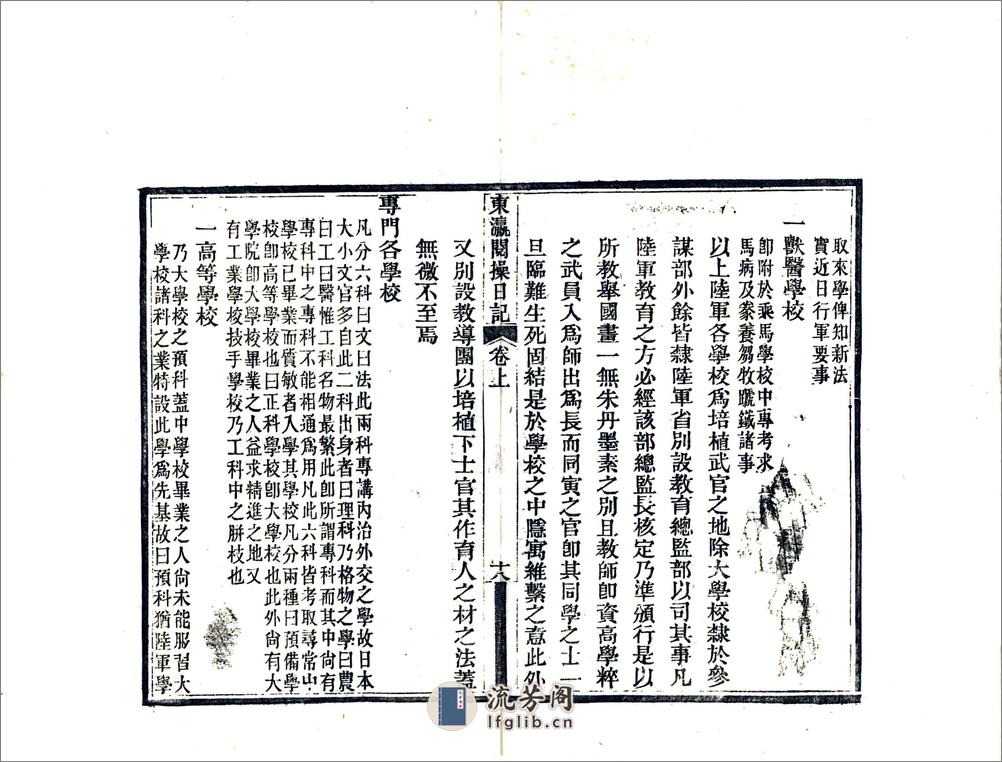 取來學俾知新法
實近日行軍要事
一獸醫學校
卽附於乘馬學校中專考求
馬病及豢養芻牧蹏鐵諸事
以上陸軍各學校爲培植武官之地除大學校隸於參
謀部外餘皆隸陸軍省別設教育總監部以司其事凡
陸軍教育之方必經該部總監長核定乃準頒行是以
所教舉國畫一無朱丹墨素之別且教師卽資高學粹
之武員入爲師出爲長而同寅之官卽其同學之士一
旦臨難生死固結是於學校之中隱寓維繫之意此外
東瀛閱操日記
卷上
十八
又別設教導團以培植下士官其作育人之材之法蓋
無微不至焉
專門各學校
凡分六科曰文曰法此兩科專講內治外交之學故日本
大小文官多自此二科出身者曰理科乃格物之學曰農
曰工曰醫惟工科名物最繁此卽所謂專科而其中尙有
專科中之專科不能相通爲用凡此六科皆考取尋常中
學校已畢業而質敏者入學其學校凡分兩種曰預備學
校卽高等學校也曰正科學校卽大學校也此外尙有大
學院卽大學校畢業之人益求精進之地又
有工業學校技手學校乃工科中之騈枝也
一高等學校
乃大學校之預科蓋中學校畢業之人尙未能服習大
學校諸科之業特設此學爲先基故曰預科猶陸軍學
流芳阁
lfglib.cn